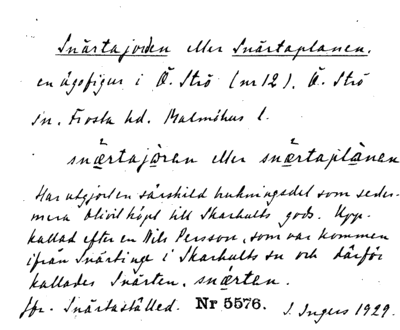 Snärtajorden eller Snärtaplanen.
en ägofigur i Ö. Strö (nr 12). Ö. Strö
sn. Frosta hd. Malmöhus l.
snærtajoran eller snærtaplånen
Har utgjort en särskild brukningsdel som seder-
mera blivit köpt till Skarhults gods. Upp-
kallad efter en Nils Persson, som var kommen
ifrån Snärtinge i Skarhults sn och därför
kallades Snärten, snærten.
Jfr. Snärtaställed. Nr 5576. I. Ingers 1929.